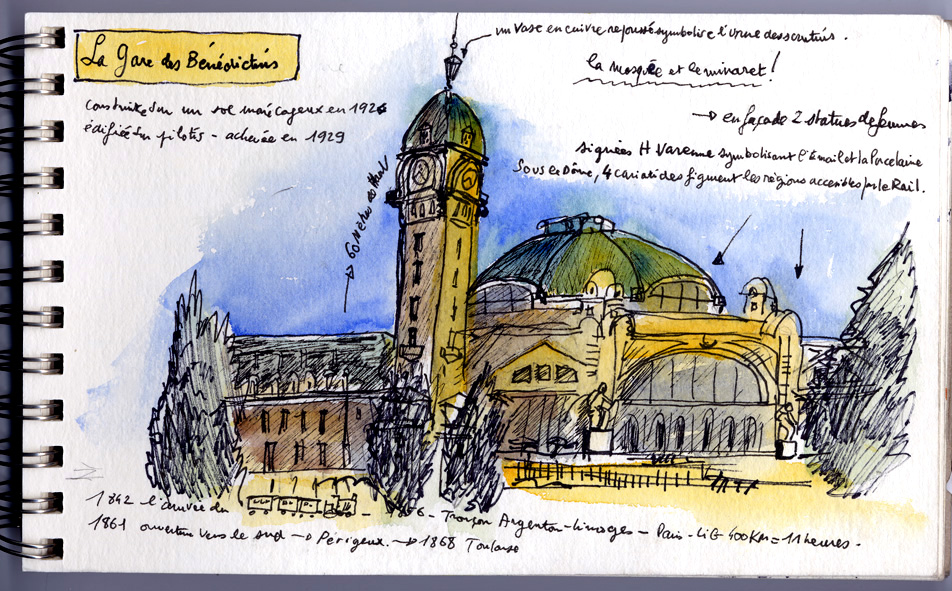 La Gare des Bénédictins
un vase en cuivre repoussé symbolise l'urne des scrutins.
la mosquée et le minaret !
construite sur un sol marécageux en 192
édifiée sur pilotis - achevée en 1929
→ en façade 2 statues de femmes
signées H Varenne symbolisant l'Email et la Porcelaine
Sous le Dôme, 4 cariatides figurent les régions accessibles par le Rail.
→ 60 mètres de Haut
1842 - l'arrivée du - 1856 - Tronçon Argenton-Limoges - Paris - LiG 400Km = 11 heures -
1861 ouverture vers le sud → Périgueux. → 1868 Toulouse